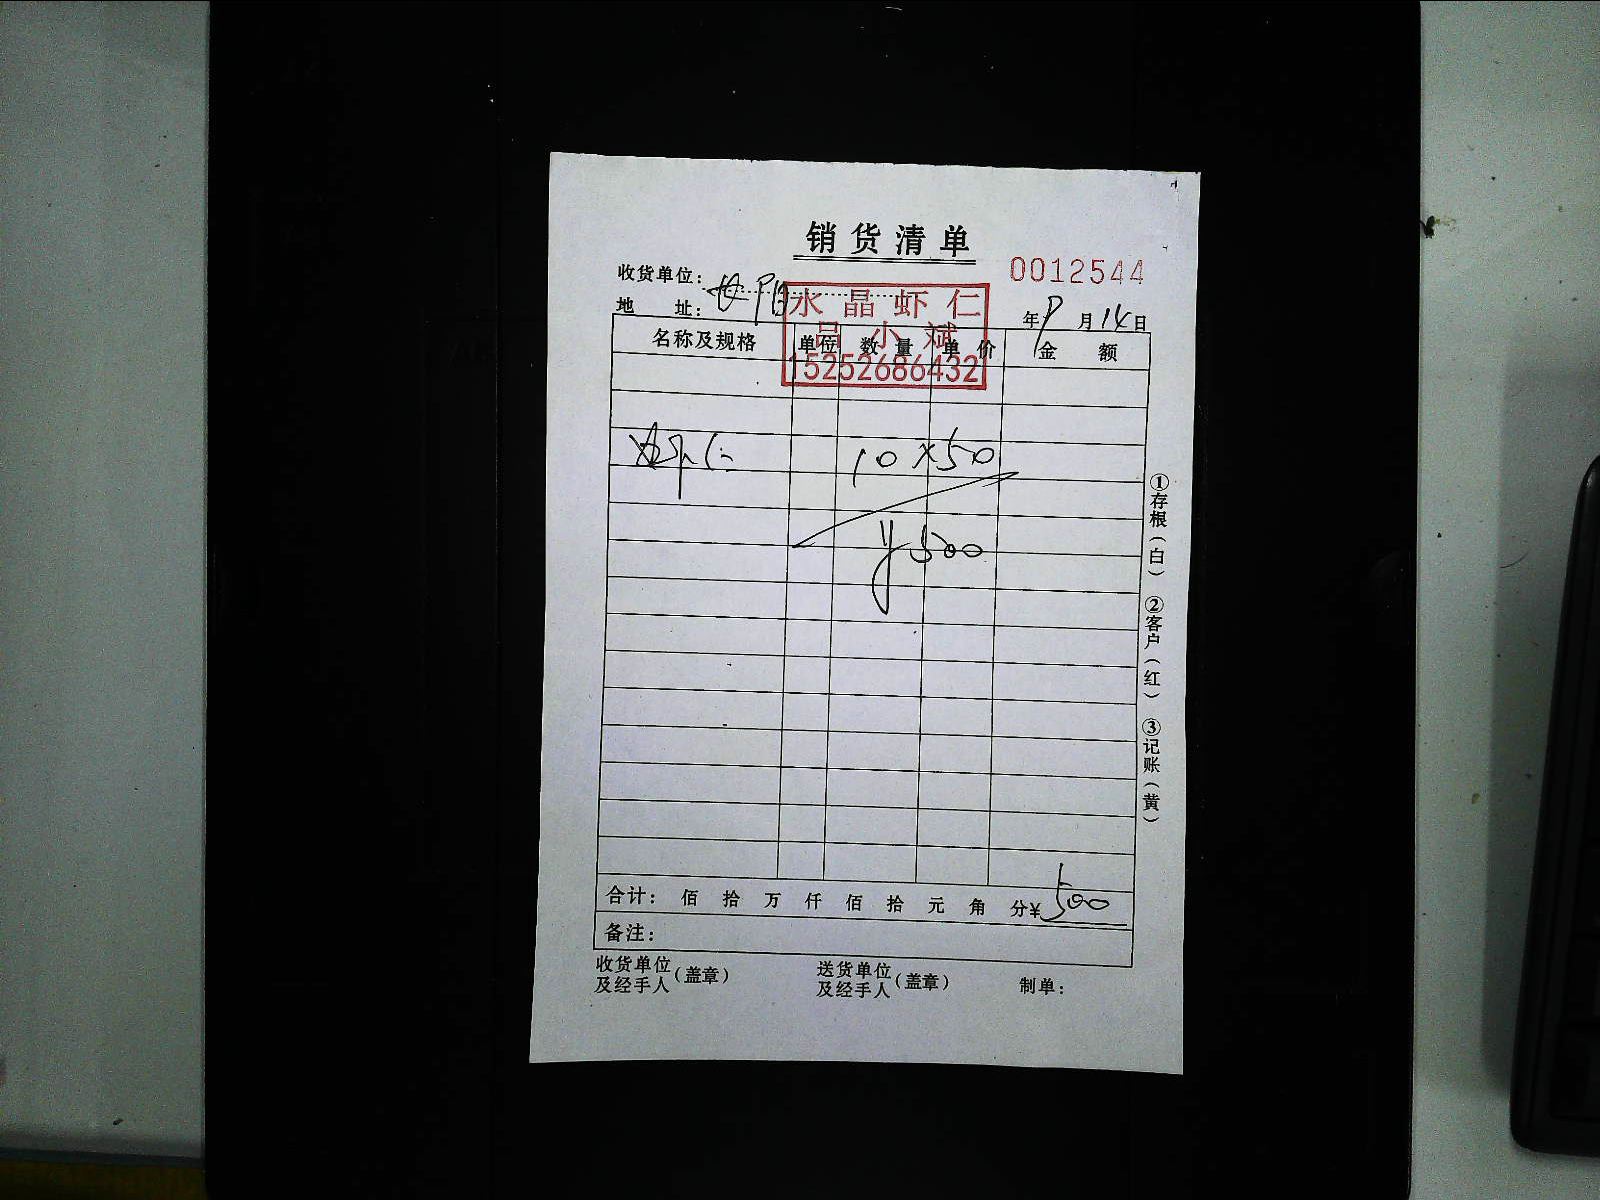 销货清单
0012544
收货单位:
地 址:
年 9 月 14 日
水晶虾仁
吕小斌
15252686432
名称及规格 单位 数量 单价 金额
10 × 50
¥ 500
合计: 佰 拾 万 仟 佰 拾 元 角 分 ¥ 500
备注:
收货单位及经手人(盖章) 送货单位及经手人(盖章) 制单:
①存根(白) ②客户(红) ③记账(黄)